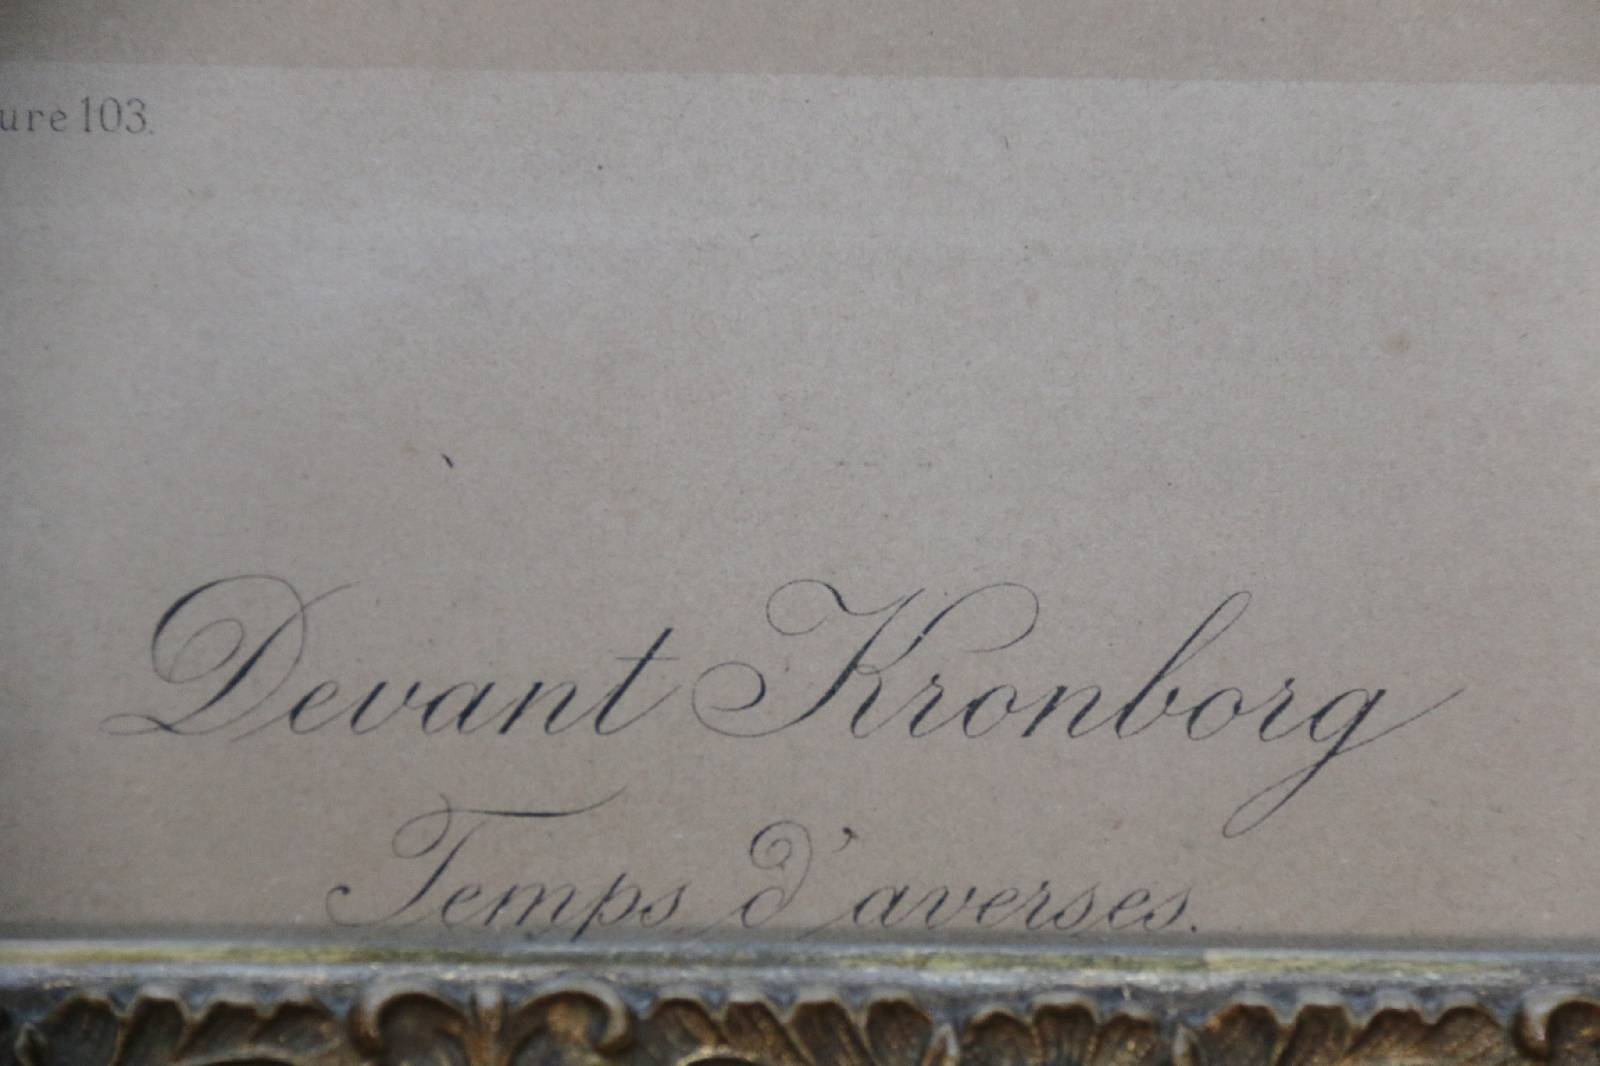 ure 103.
Devant Kronborg
Temps d'averses.